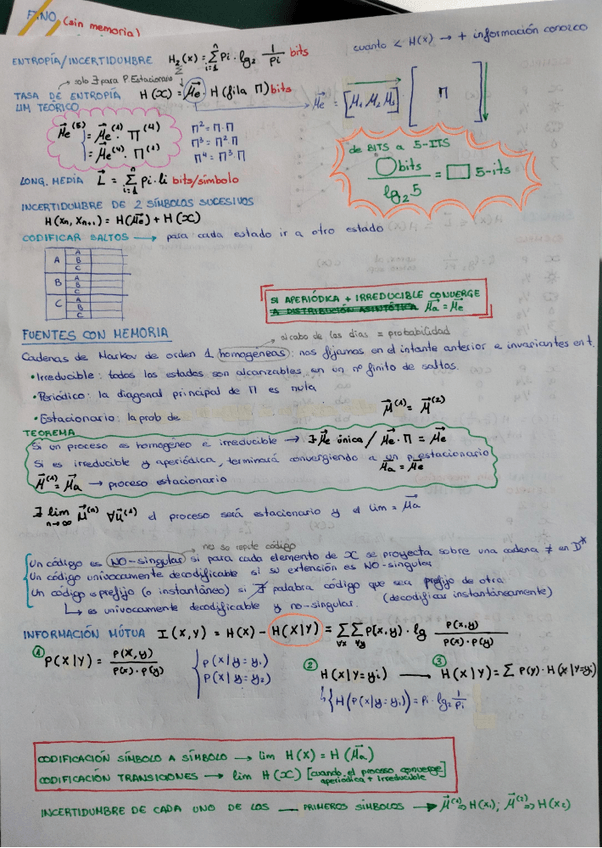 FFNO (sin memoria)
cuanto < H(x) → + información conozco
ENTROPÍA/INCERTIDUMBRE H₂(x) = Σ pi · lg₂ 1/pi bits
i=1 n
solo ∃ para P. Estacionario
TASA DE ENTROPÍA H(X) = μe · H(fila Π) bits
LIM TEÓRICO
μe = [μ₁ μ₂ μ₃] [Π]
μe⁽⁵⁾ = μe⁽¹⁾ · Π⁽⁴⁾
= μe⁽⁴⁾ · Π⁽¹⁾
Π² = Π · Π
Π³ = Π² · Π
Π⁴ = Π³ · Π
de BITS a 5-ITS
○ bits / lg₂ 5 = □ 5-its
LONG. MEDIA L = Σ pi · li bits/símbolo
i=1 n
INCERTIDUMBRE DE 2 SÍMBOLOS SUCESIVOS
H(Xn, Xn+1) = H(μe) + H(X)
CODIFICAR SALTOS → para cada estado ir a otro estado
A A B C
B A B C
C A B C
SI APERIÓDICA + IRREDUCIBLE CONVERGE
A DISTRIBUCIÓN ASINTÓTICA μa = μe
FUENTES CON MEMORIA
si cabo de los días = probabilidad
Cadenas de Markov de orden 1 homogeneas: nos fijamos en el intante anterior a invariantes en t.
• Irreducible: todos los estados son alcanzables en un nº finito de saltos.
• Periódico: la diagonal principal de Π es nula
• Estacionario: la prob de μ⁽¹⁾ = μ⁽²⁾
TEOREMA
Si un proceso es homogéneo e irreducible → ∃ μe única / μe · Π = μe
Si es irreducible y aperiódica, terminará convergiendo a un p. estacionario
μa = μe
μ⁽¹⁾ = μa → proceso estacionario
∃ lim μ⁽ⁿ⁾ ∀ μ⁽¹⁾ el proceso será estacionario y el lim = μa
n→∞
no se repite código
Un código es NO-singular si para cada elemento de X se proyecta sobre una cadena ≠ en D*
Un código univocamente decodificable si su extensión es NO-singular
Un código es prefijo (o instantáneo) si ∄ palabra código que sea prefijo de otra
↳ es univocamente decodificable y no-singular. (decodificas instantáneamente)
INFORMACIÓN MÚTUA I(X,Y) = H(X) - H(X|Y) = ΣΣ P(x,y) · lg P(x,y) / P(x) · P(y)
∀x ∀y
① P(X|Y) = P(X,Y) / P(x) · P(y)
{ P(X|y=y₁)
P(X|y=y₂)
② H(X|Y=yi) → ③ H(X|Y) = Σ P(y) · H(X|Y=yi)
↳ { H(P(X|y=y₁)) = Pi · lg₂ 1/Pi
CODIFICACIÓN SÍMBOLO A SÍMBOLO → lim H(X) = H(μa)
CODIFICACIÓN TRANSICIONES → lim H(X) [cuando el proceso converge]
aperiódica + irreducible
INCERTIDUMBRE DE CADA UNO DE LOS ___ PRIMEROS SÍMBOLOS → μ⁽¹⁾ ⇒ H(X₁); μ⁽²⁾ ⇒ H(X₂)